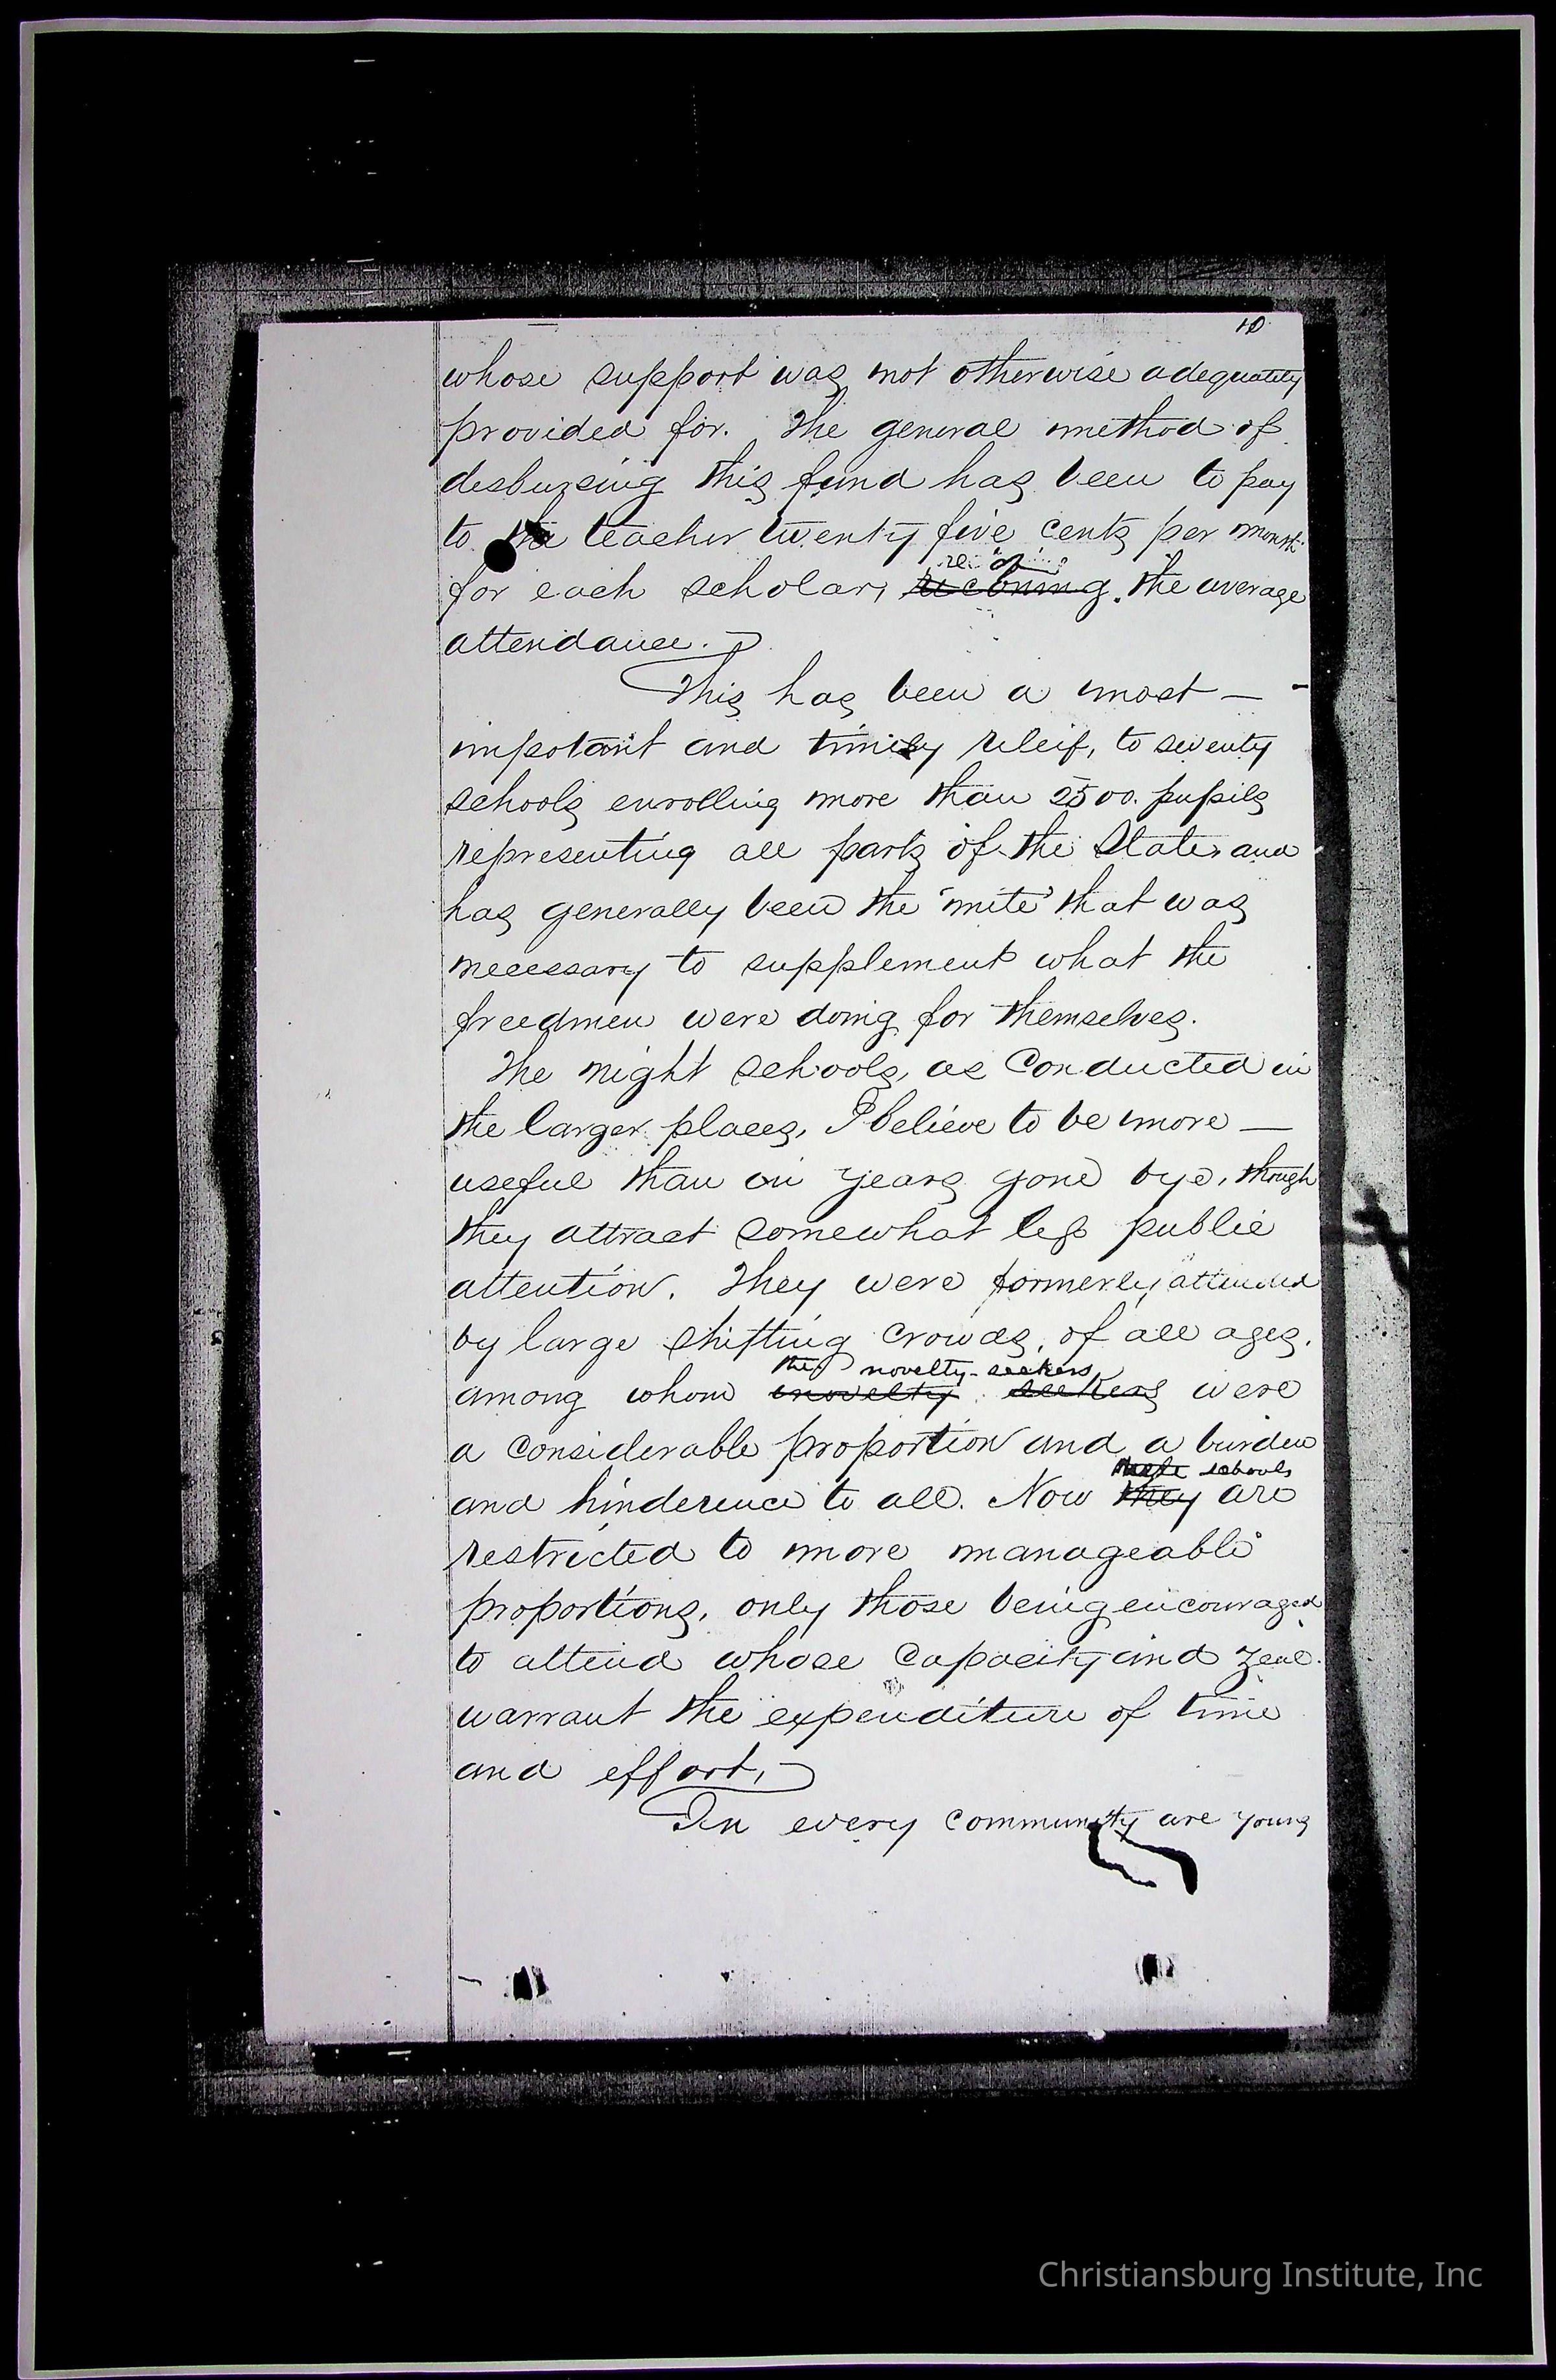 10
whose support was not otherwise adequately
provided for. The general method of
desbursing this fund has been to pay
to the teacher twenty five cents per month
for each scholar, reconing the average
attendance.
This has been a most —
impotant and timely releif, to seventy
schools enrolling more than 2500. pupils
representing all parts of the State, and
has generally been the "mite" that was
necessary to supplement what the
freedmen were doing for themselves.
The night schools, as Conducted in
the larger places, I believe to be more —
useful than in years gone bye, though
they attract somewhat less public
attention. They were formerly attended
by large shifting crowds, of all ages,
the novelty-seekers
among whom novelty seekers were
a considerable proportion and a burden
these schools
and hinderence to all. Now they are
restricted to more manageable
proportions, only those being encouraged
to attend whose capacity and zeal
warrant the expenditure of time
and effort,
In every community are young
Christiansburg Institute, Inc